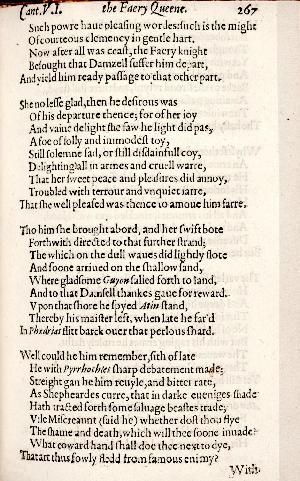 Cant. V.I. the Faery Queene. 267
Such powre haue pleasing wordes: such is the might
Of courteous clemency in gentle hart.
Now after all was ceast, the Faery knight
Besought that Damzell suffer him depart,
And yield him ready passage to that other part.
She no lesse glad, then he desirous was
Of his departure thence; for of her ioy
And vaine delight she saw he light did pas,
A foe of folly and immodest toy,
Still solemne sad, or still disdainfull coy,
Delighting all in armes and cruell warre,
That her sweet peace and pleasures did annoy,
Troubled with terrour and vnquiet iarre,
That she well pleased was thence to amoue him farre.
Tho him she brought abord, and her swift bote
Forthwith directed to that further strand;
The which on the dull waues did lightly flote
And soone arriued on the shallow sand,
Where gladsome Guyon salied forth to land,
And to that Damsell thankes gaue for reward.
Vpon that shore he spyed Atin stand,
Thereby his maister left, when late he far'd
In Phedrias flitt barck ouer that perlous shard.
Well could he him remember, sith of late
He with Pyrrhochles sharp debatement made;
Streight gan he him reuyle, and bitter rate,
As Shepheardes curre, that in darke eueninges shade
Hath tracted forth some saluage beastes trade;
Vile Miscreaunt (said he) whether dost thou flye
The shame and death, which will thee soone inuade?
What coward hand shall doe thee next to dye,
That art thus fowly fledd from famous enimy?
With